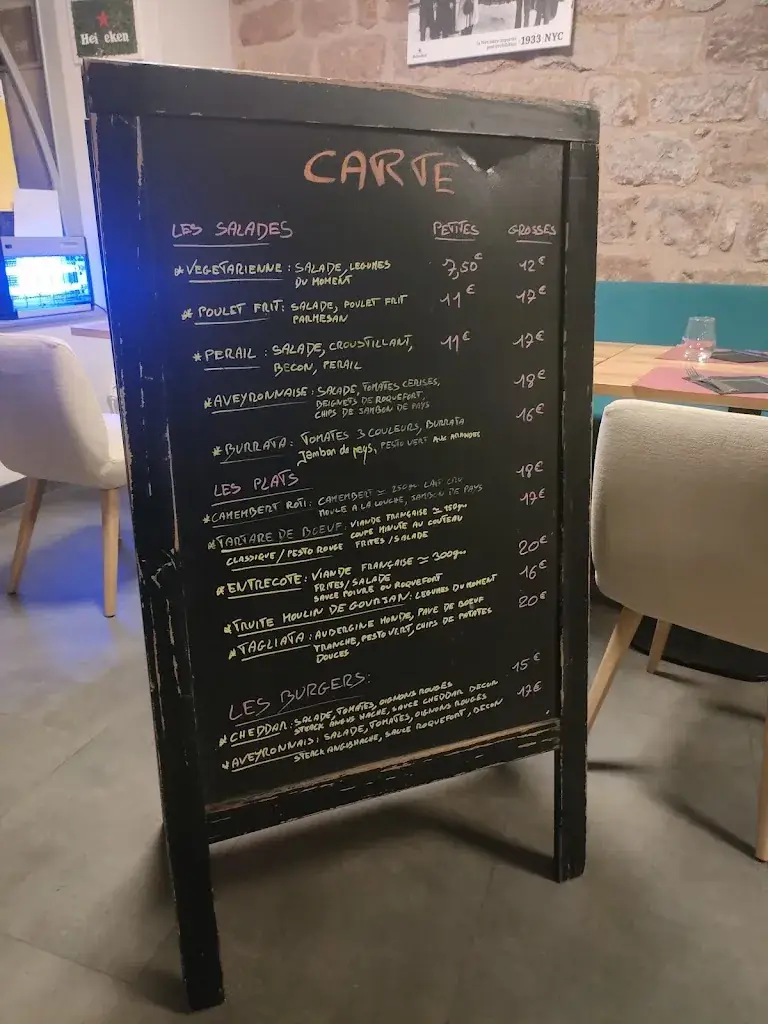 Heineken
1933 NYC
CARTE
LES SALADES PETITES GROSSES
*VEGETARIENNE : SALADE, LEGUMES 7,50€ 12€
DU MOMENT
*POULET FRIT : SALADE, POULET FRIT 11€ 17€
PARMESAN
*PERAIL : SALADE, CROUSTILLANT, 11€ 17€
BECON, PERAIL
*AVEYRONNAISE : SALADE, TOMATES CERISES, 18€
BEIGNETS DE ROQUEFORT,
CHIPS DE JAMBON DE PAYS
*BURRATA : TOMATES 3 COULEURS, BURRATA 16€
Jambon de pays, PESTO VERT AUX AMANDES
LES PLATS
*CAMEMBERT ROTI : CAMEMBERT ≃ 250gr LAIT CRU 18€
MOULE A LA LOUCHE, JAMBON DE PAYS
*TARTARE DE BOEUF : VIANDE FRANÇAISE ≃ 150gr 17€
COUPE MINUTE AU COUTEAU
CLASSIQUE / PESTO ROUGE FRITES / SALADE
*ENTRECOTE : VIANDE FRANÇAISE ≃ 300gr 20€
FRITES / SALADE
SAUCE POIVRE OU ROQUEFORT
*TRUITE MOULIN DE GOURJAN : LEGUMES DU MOMENT 16€
*TAGLIATA : AUBERGINE MONDE, PAVE DE BOEUF 20€
TRANCHE, PESTO VERT, CHIPS DE PATATES
DOUCES
LES BURGERS :
*CHEDDAR : SALADE, TOMATES, OIGNONS ROUGES 15€
STEACK ANGUS HACHE, SAUCE CHEDDAR BECON
*AVEYRONNAIS : SALADE, TOMATES, OIGNONS ROUGES 17€
STEACK ANGUS HACHE, SAUCE ROQUEFORT, BECON